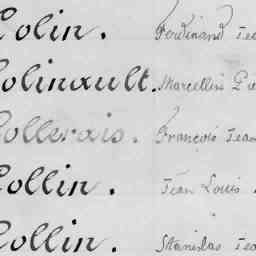 Colin. Ferdinand Jea
Colinault. Marcellin Pie
Collerais. François Jean
Collin. Jean Louis
Collin. Stanislas Jea